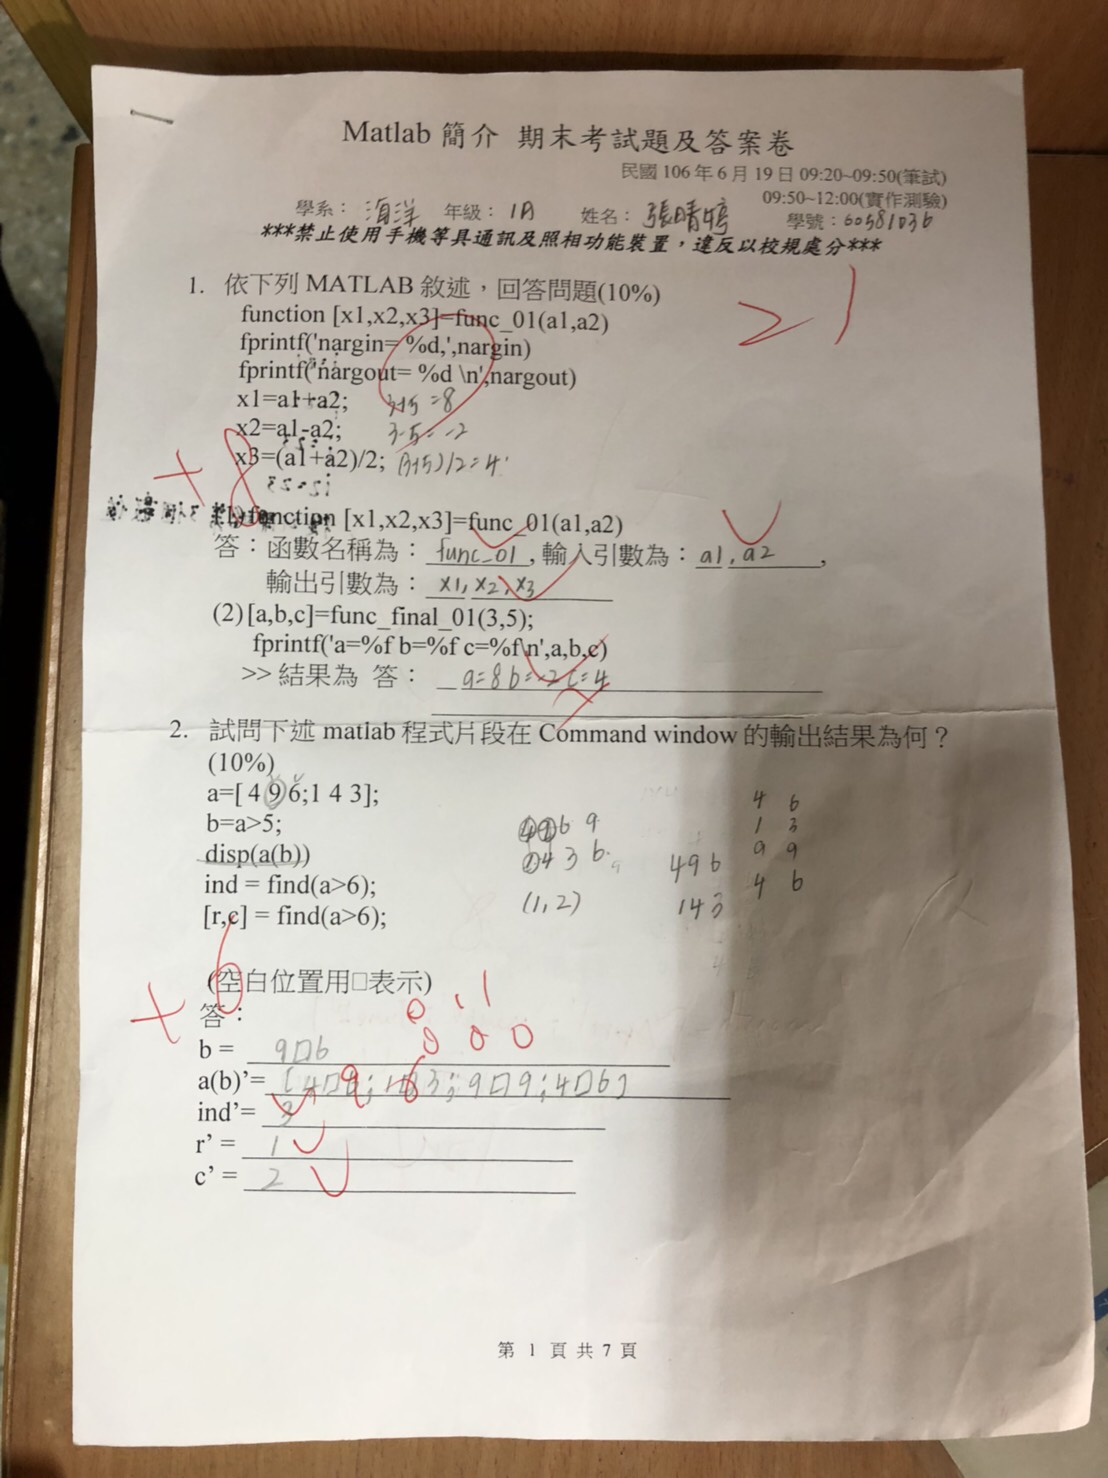 Matlab 簡介 期末考試題及答案卷
民國 106 年 6 月 19 日 09:20~09:50(筆試)
09:50~12:00(實作測驗)
學系： 海洋 年級： 1A 姓名： 張晴婷 學號：60581036
***禁止使用手機等具通訊及照相功能裝置，違反以校規處分***
21
1. 依下列 MATLAB 敘述，回答問題(10%)
function [x1,x2,x3]=func_01(a1,a2)
fprintf('nargin= %d,',nargin)
fprintf('nargout= %d \n',nargout)
x1=a1+a2; 3+5 =8
x2=a1-a2; 3-5= -2
x3=(a1+a2)/2; (3+5)/2=4
+8
function [x1,x2,x3]=func_01(a1,a2)
答：函數名稱為： func_01 , 輸入引數為： a1, a2 ,
輸出引數為： x1, x2, x3
(2)[a,b,c]=func_final_01(3,5);
fprintf('a=%f b=%f c=%f\n',a,b,c)
>> 結果為 答： a=8 b=-2 c=4
2. 試問下述 matlab 程式片段在 Command window 的輸出結果為何？
(10%)
a=[ 4 9 6;1 4 3];
b=a>5;
disp(a(b))
ind = find(a>6);
[r,c] = find(a>6);
4 6
1 3
9 9
4 6
4 9 6
1 4 3
(1,2)
+6
(空白位置用□表示)
答：
0 1 1
0 0 0
b = 9□6
a(b)’= [4□6;1□3;9□9;4□6]
9 6
ind’= 3
r’ = 1
c’ = 2
第 1 頁 共 7 頁